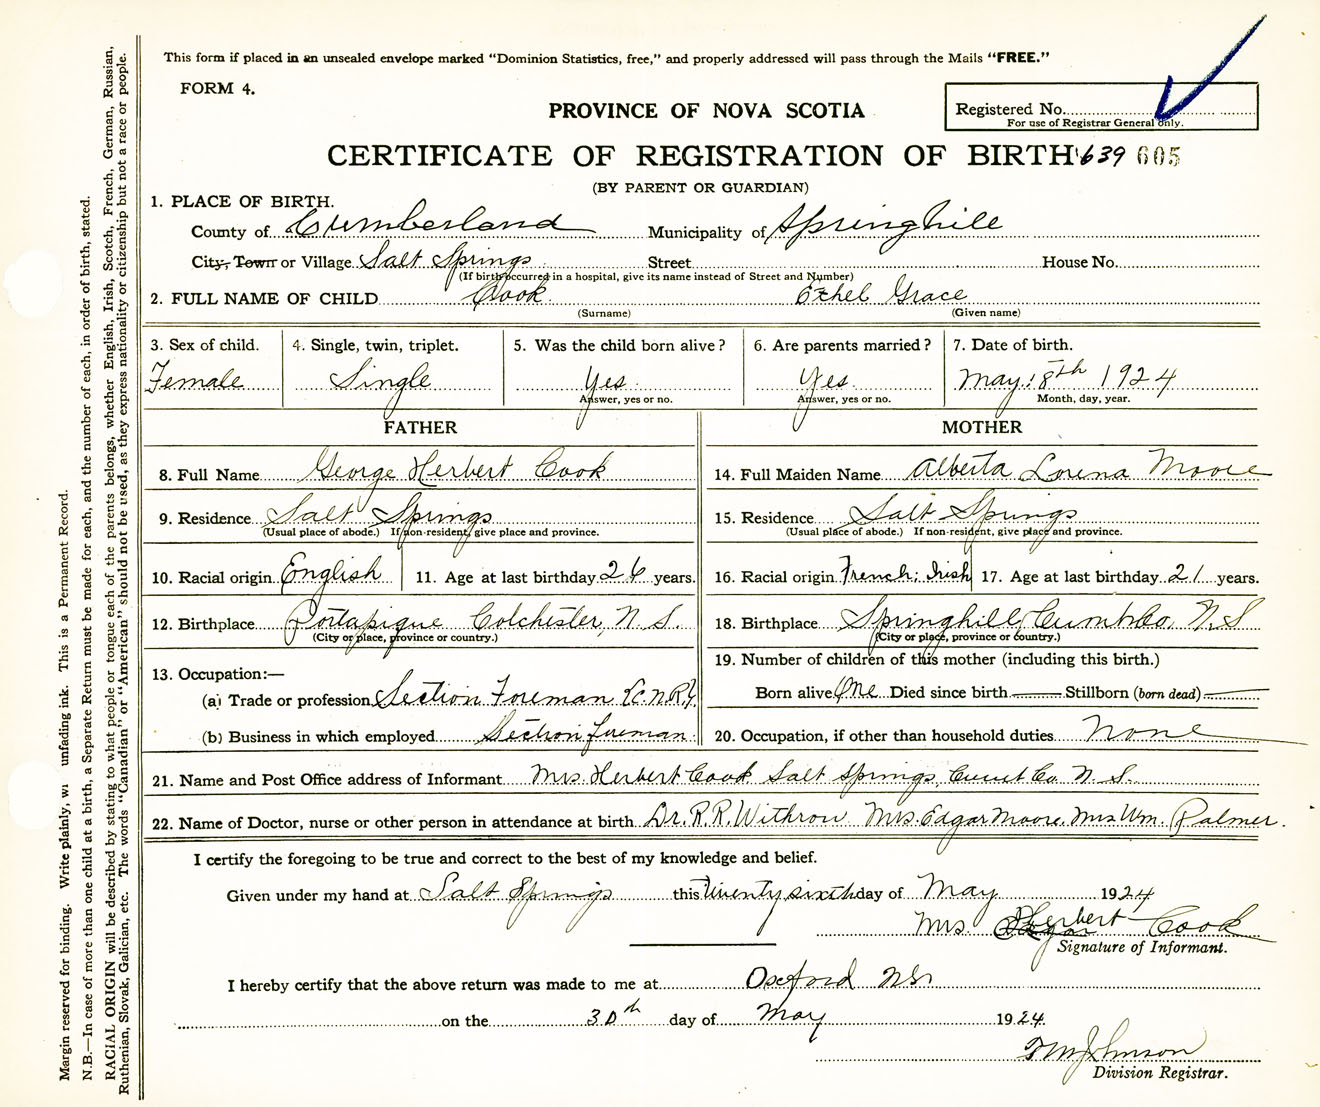 This form if placed in an unsealed envelope marked "Dominion Statistics, free," and properly addressed will pass through the Mails "FREE."
FORM 4.
PROVINCE OF NOVA SCOTIA
Registered No.
For use of Registrar General only.
CERTIFICATE OF REGISTRATION OF BIRTH 639 605
(BY PARENT OR GUARDIAN)
1. PLACE OF BIRTH.
County of Cumberland Municipality of Springhill
City, Town or Village Salt Springs Street House No.
(If birth occurred in a hospital, give its name instead of Street and Number)
2. FULL NAME OF CHILD Cook Ethel Grace
(Surname) (Given name)
3. Sex of child. 4. Single, twin, triplet. 5. Was the child born alive? 6. Are parents married? 7. Date of birth.
Female Single Yes. Yes. May 18th 1924
Answer, yes or no. Answer, yes or no. Month, day, year.
FATHER MOTHER
8. Full Name George Herbert Cook 14. Full Maiden Name Alberta Lorena Moore
9. Residence Salt Springs 15. Residence Salt Springs
(Usual place of abode.) If non-resident, give place and province. (Usual place of abode.) If non-resident, give place and province.
10. Racial origin English 11. Age at last birthday 26 years. 16. Racial origin French: Irish 17. Age at last birthday 21 years.
12. Birthplace Portapique Colchester, N.S. 18. Birthplace Springhill Cumb Co N.S
(City or place, province or country.) (City or place, province or country.)
13. Occupation:— 19. Number of children of this mother (including this birth.)
(a) Trade or profession Section Foreman (C.N.R). Born alive One Died since birth — Stillborn (born dead) —
(b) Business in which employed Section foreman 20. Occupation, if other than household duties None
21. Name and Post Office address of Informant Mrs. Herbert Cook Salt Springs, Cumb Co. N.S.
22. Name of Doctor, nurse or other person in attendance at birth Dr. R.R. Withrow Mrs. Edgar Moore. Mrs Wm. Palmer.
I certify the foregoing to be true and correct to the best of my knowledge and belief.
Given under my hand at Salt Springs this twenty sixth day of May 1924
Mrs. Herbert Cook
Signature of Informant.
I hereby certify that the above return was made to me at Oxford NS
on the 30th day of May 1924.
Johnson
Division Registrar.
Margin reserved for binding. Write plainly, wi unfading ink. This is a Permanent Record.
N.B.—In case of more than one child at a birth, a Separate Return must be made for each, and the number of each, in order of birth, stated.
RACIAL ORIGIN will be described by stating to what people or tongue each of the parents belongs, whether English, Irish, Scotch, French, German, Russian,
Ruthenian, Slovak, Galician, etc. The words "Canadian" or "American" should not be used, as they express nationality or citizenship but not a race or people.